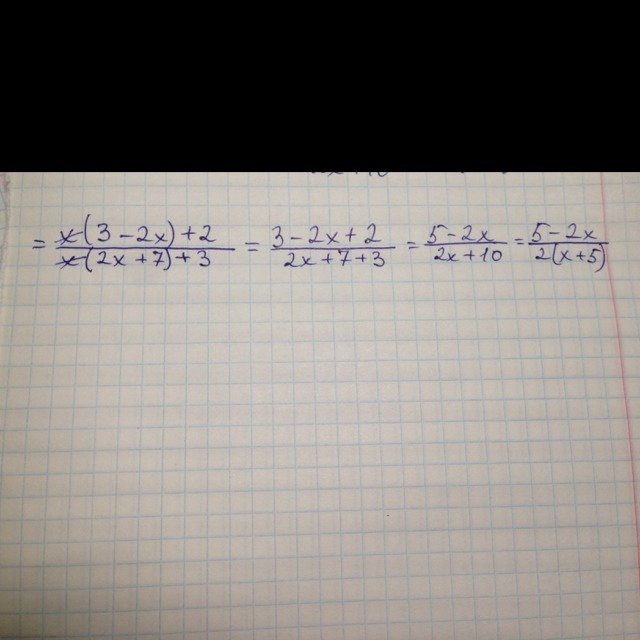 = x(3 - 2x) + 2 / x(2x + 7) + 3 = 3 - 2x + 2 / 2x + 7 + 3 = 5 - 2x / 2x + 10 = 5 - 2x / 2(x + 5)